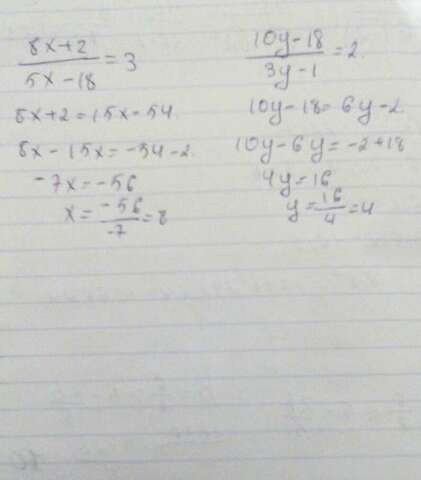 8x+2/5x-18=3
8x+2=15x-54.
8x-15x=-54-2.
-7x=-56
x=-56/-7=8
10y-18/3y-1=2.
10y-18=6y-2.
10y-6y=-2+18
4y=16
y=16/4=4